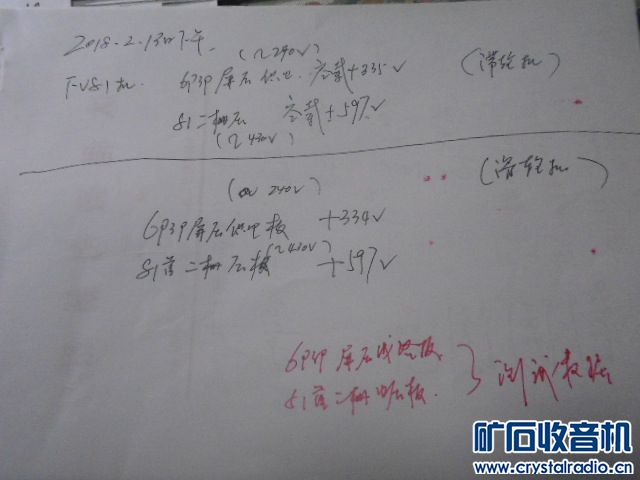 2018.2.13日下午.
(~240V)
F-V81机. 6P3P屏压供电. 空载+335V
81二栅压 空载+597V
(~430V)
(~240V)
6P3P屏压供电板 +334V
81管二栅压板(~430V) +597V
6P3P屏压
81管二栅 板. } 测试数据
矿石收音机
www.crystalradio.cn